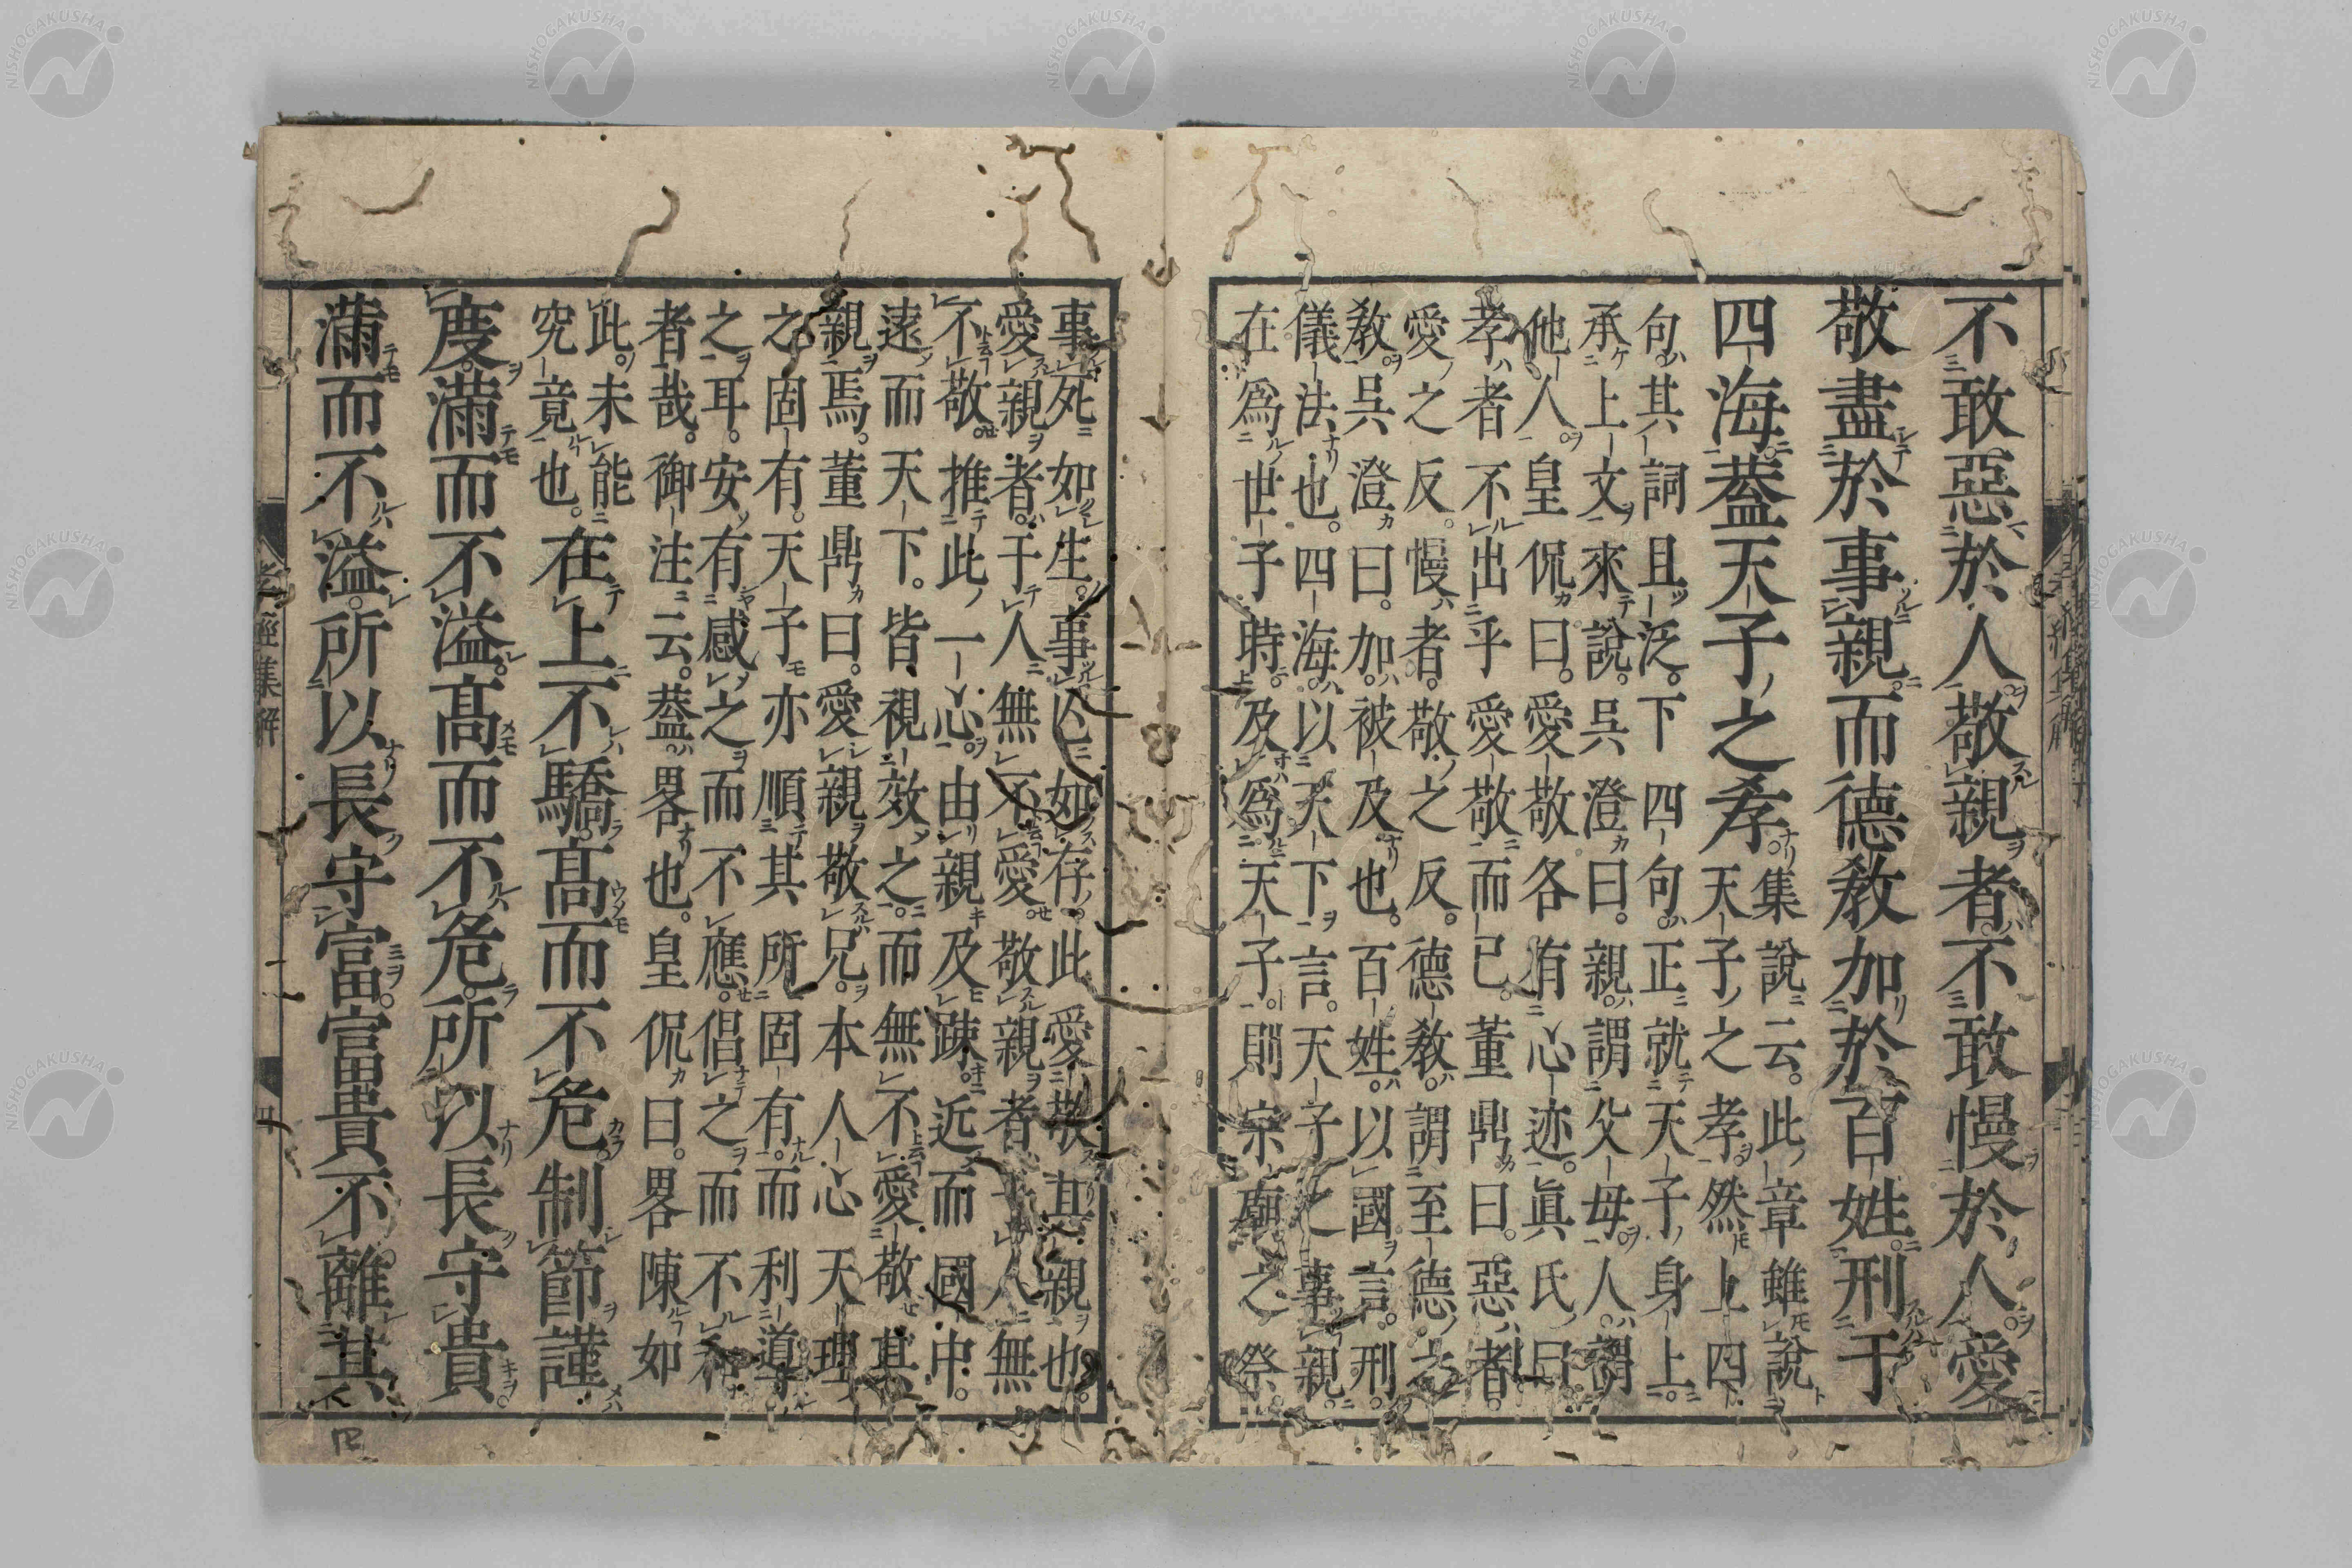 不敢惡於人敬親者不敢慢於人愛
敬盡於事親而德教加於百姓刑于
四海蓋天子之孝
集說云此章雖說
天子之孝然上四
句其詞且泛下四句正就天子身上
承上文來說吳澄曰親謂父母人謂
他人皇侃曰愛敬各有心迹真氏曰
孝者不出乎愛敬而已董鼎曰惡者
愛之反慢者敬之反德教謂至德之
教吳澄曰加被及也百姓以國言刑
儀法也四海以天下言天子之事親
在為世子時及為天子則宗廟之祭
事死如生事亡如存此愛敬其親也
愛親者于人無不愛敬親者于人無
不敬推此一心由親及疎近而國中
遠而天下皆視效之而無不愛敬其
親焉董鼎曰愛親敬兄本人心天理
之固有天子亦順其所固有而利導
之耳安有感之而不應倡之而不和
者哉御注云蓋畧也皇侃曰畧陳如
此未能
究竟也
在上不驕高而不危制節謹
度滿而不溢高而不危所以長守貴
滿而不溢所以長守富富貴不離其
孝經集解
四